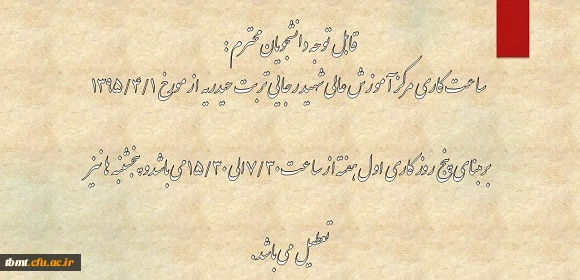 قابل توجه دانشجویان محترم :
ساعت کاری مرکز آموزش عالی شهید رجایی تربت حیدریه از مورخ ۱۳۹۵/۴/۱
برمبنای پنج روز کاری اول هفته از ساعت ۷/۳۰ الی ۱۵/۳۰ می باشد و پنجشنبه ها نیز
تعطیل می باشد.
tbmt.cfu.ac.ir